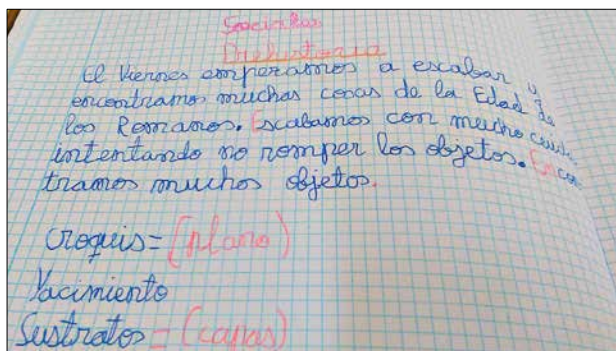 Sociales
Prehistoria
El Viernes emperamos a escabar y
encontramos muchas cosas de la Edad de
los Romanos. Escabamos con mucho cuida
intentando no romper los objetos. Encon
tramos muchos objetos.
Croquis = (plano)
Yacimiento
Sustratos = (capas)